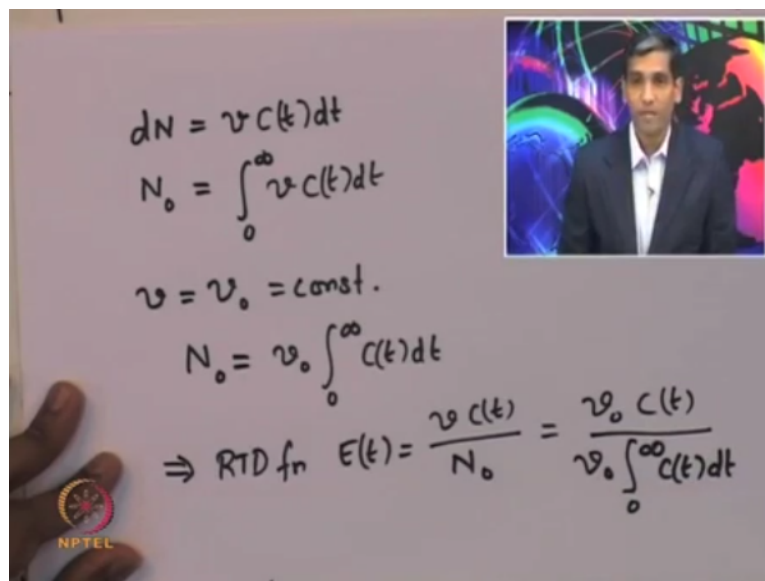 dN = v C(t) dt
N₀ = ∫₀^∞ v C(t) dt
v = v₀ = const.
N₀ = v₀ ∫₀^∞ C(t) dt
⇒ RTD fn E(t) = v C(t) / N₀ = v₀ C(t) / v₀ ∫₀^∞ C(t) dt
NPTEL